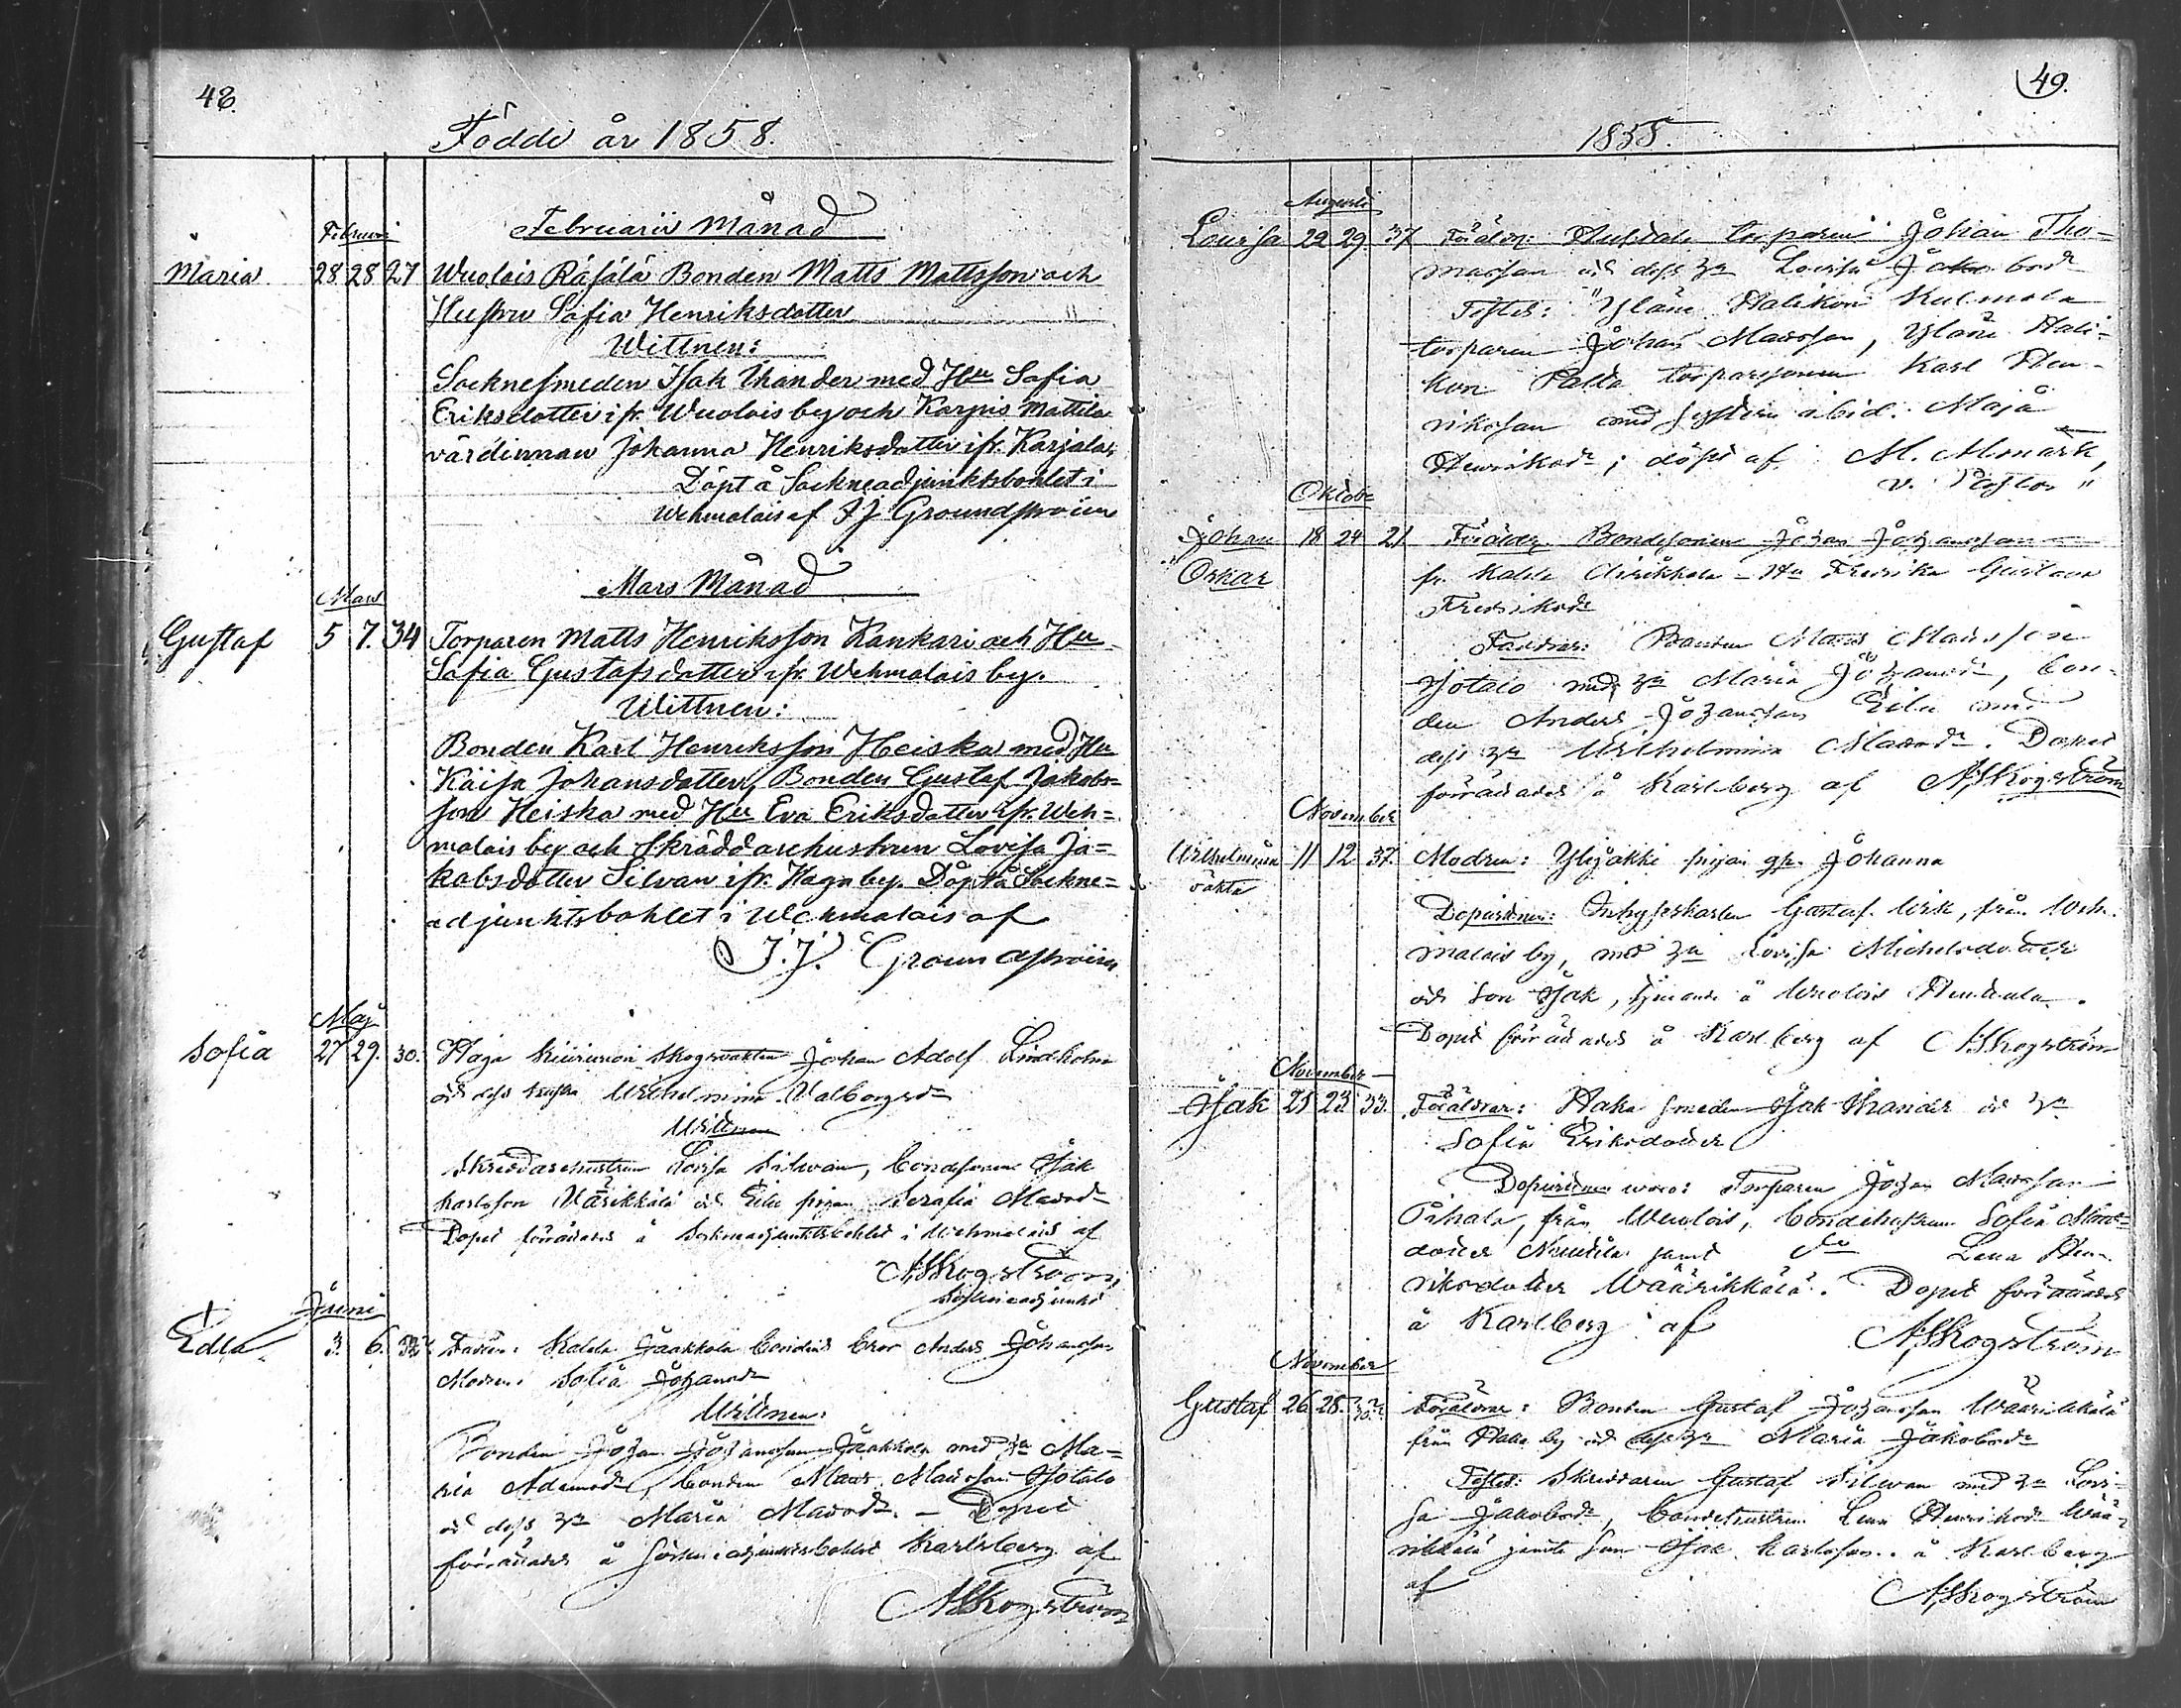 48.
Födde år 1858.
Februarii Månad
Februari
Maria 28 28 27 Wuolais Räfälä Bonden Matts Mattsson och
Hustru Safia Henriksdotter
Wittnen:
Socknesmeden Isak Thander med Hu Safia
Eriksdotter ifr. Wuolais by och Karpis Mattila
värdinnan Johanna Henriksdotter ifr. Karjala,
Döpt å Sockneadjunktsbohlet i
Wehmalais af J J Groundstroëm
Mars Månad
Mars
Gustaf 5 7. 34 Torparen Matts Henriksson Kankari och Hu
Safia Gustafsdotter ifr. Wehmalais by.
Wittnen:
Bonden Karl Henriksson Heiska med Hu
Kaisa Johansdotter, Bonden Gustaf Jakobs=
son Heiska med Hu Eva Eriksdotter ifr. Weh=
malais by och Skräddarehustrun Lovisa Ja=
kobsdotter Silvan ifr. Haga by. Döpt å Sockne=
adjunktsbohlet i Wehmalais af
J. J. Groundstroëm
Maj
Sofia 27 29. 30. Haga skogsvakten Johan Adolf Lindholm
och dess hustru Wilhelmina Valborgsdr
Wittnen
Skreddarehustrun Lovisa Silwan, bondesonen Isak
Karlsson Wärikkälä och Eile pigan Serafia Matsdr
Dopet förrättades å Sockneadjunktsbohlet i Wehmalais af
A. Skogström,
Sockneadjunkt
Juni
Edla 3. 6. Fadren: Kalela Jaakkola bondens bror Anders Johansson
Modren: Sofia Johansdr
Wittnen:
Bonden Johan Johansson Jaakkola med Hu Ma=
ria Adamsdr, bonden Mats Matsson Isotalo
och dess Hu Maria Matsdr. – Dopet
förrättades å Sockneadjunktsbohlet Karlsberg af
A. Skogström
49.
1858.
Augusti
Lovisa 22 29. 37 Föräldrar: torparen Johan Tho-
masson och dess Hu Lovisa Jakobsdr
Testes: Yläne Halikon Kulmala
torparen Johan Matsson, Yläne Hali-
kon Palda torparsonen Karl Hen-
riksson med systern ibid. Maja
Henriksdr; döpt af M. Almark,
v. Pastor
Oktober
Johan 18 24 21 Föräldrar. Bondesonen Johan Johansson
Oskar fr. Kalela – Hu Fredrika Gustava
Fredriksdr
Faddrar: Bonden Mats Matsson
Isotalo med Hu Maria Johansdr, bon-
den Anders Johansson Eile med
dess Hu Wilhelmina Matsdr. Dopet
förrättades å Karlberg af A. Skogström
November
Wilhelmina 11 12 37. Modren: Ylijakki pigan Johanna
oäkta
Dopvittnen: Inhyseskarlen Gustaf Wik, från Weh-
malais by, med Hu Lovisa Michelsdotter
och son Isak, tjenande å Wuolois
Dopet förrättades å Karlberg af A. Skogström
November
Isak 21 23 33. Föräldrar: Haka smeden Isak Thander och Hu
Sofia Eriksdotter
Dopvittnen woro: Torparen Johan Matsson
från Wuolois, bondehustrun Sofia Mats-
dotter samt do Lena Hen-
riksdotter Wäärikkälä. Dopet förrättades
å Karlberg af A. Skogström
November
Gustaf 26 28. Föräldrar: Bonden Gustaf Johansson Wäärikkälä
från Haka by och dess Hu Maria Jakobsdr
Testes: Skreddaren Gustaf Silwan med Hu Lovi-
sa Jakobsdr, bondehustrun Lena Henriksdr Wää-
rikkälä jemte son Isak Karlsson. å Karlberg
af A. Skogström